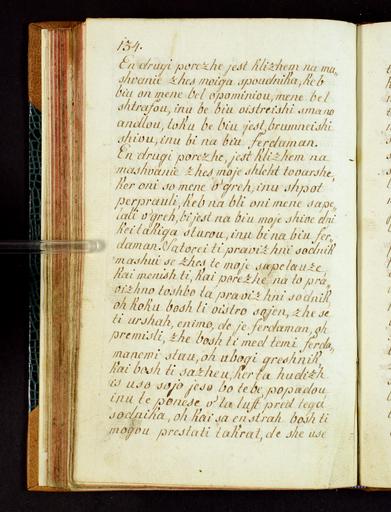 154.
En drugi porezhe jest klizhem na ma,,
shvanie zhes moiga spoudnika, keb
biu on mene bel opominiou, mene bel
shtrafou, inu be biu oistreishi smano
andlou, toku be biu jest, brumneishi
shiou, inu bi na biu ferdaman.
En drugi porezhe, jest klizhem na
mashvanie zhes moje shleht tovarshe,
ker oni so mene o'greh, inu shpot
perprauli, keb na bli oni mene sape,,
lali o'greh, bi jest na biu moje shive dni
kei takiga sturou, inu bi na biu fer,,
daman. Satorei ti pravizhni sodnik
mashui se zhes te moje sapelauze,
kai menish ti, kai porezhe na to pra,,
vizhno toshbo ta pravizhni sodnik,
oh koku bosh ti oistro sojen, zhe se
ti urshah, enimo, de je ferdaman, oh
premisli, zhe bosh ti med temi ferda,,
manemi stau, oh ubogi greshnik,
kai bosh ti sazheu, ker ta hudizh
is uso sojo jeso bo tebe popadou
inu te ponese o'ta luft pred tega
sodnika, oh kai sa en strah bosh ti
mogou prestati takrat, de she use